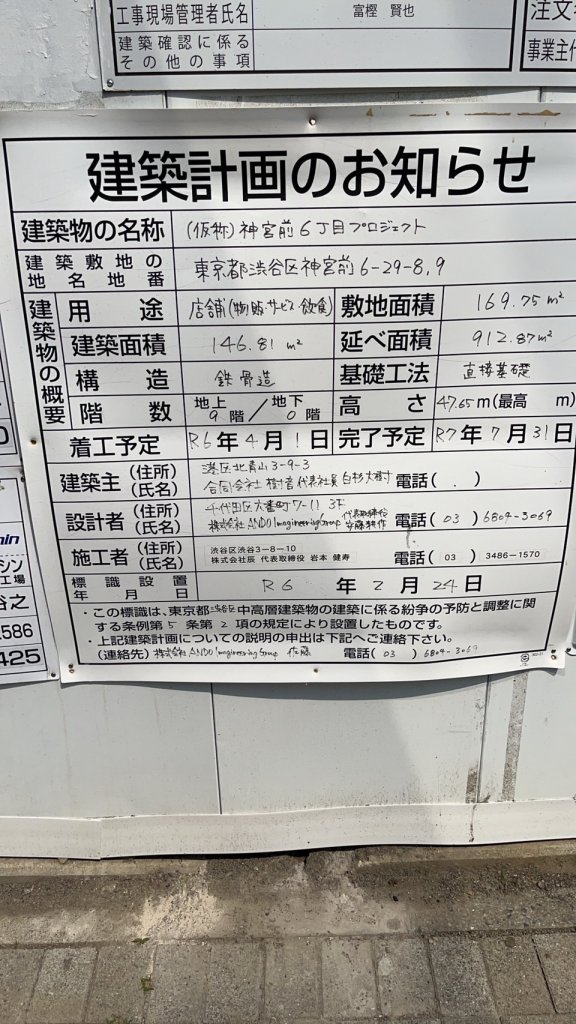 工事現場管理者氏名 富樫 賢也
建築確認に係る
その他の事項
注文者
事業主
建築計画のお知らせ
建築物の名称 (仮称)神宮前6丁目プロジェクト
建築敷地の
地名地番 東京都渋谷区神宮前6-29-8,9
建築物の概要
用途 店舗(物販・サービス・飲食) 敷地面積 169.75 m²
建築面積 146.81 m² 延べ面積 912.87 m²
構造 鉄骨造 基礎工法 直接基礎
階数 地上9階/地下0階 高さ 47.65m(最高 m)
着工予定 R6年4月1日 完了予定 R7年7月31日
建築主(住所)(氏名) 港区北青山3-9-3
合同会社 樹音 代表社員 白杉大樹 電話( . )
設計者(住所)(氏名) 千代田区六番町7-11 3F
株式会社ANDO Imagineering Group 代表取締役 安藤耕作 電話(03)6804-3069
施工者(住所)(氏名) 渋谷区渋谷3-8-10
株式会社辰 代表取締役 岩本 健寿 電話(03)3486-1570
標識設置
年月日 R6年2月24日
・この標識は、東京都渋谷区中高層建築物の建築に係る紛争の予防と調整に関
する条例第5条第2項の規定により設置したものです。
・上記建築計画についての説明の申出は下記へご連絡下さい。
(連絡先)株式会社ANDO Imagineering Group 佐藤 電話(03)6804-3069
シン
工場
谷之
1586
425